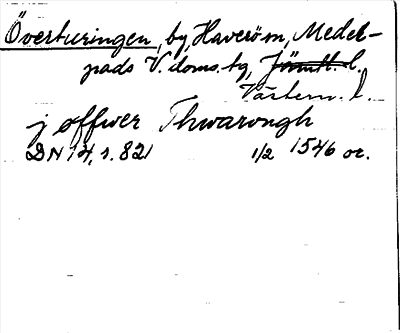 Överturingen, by, Haverö sn, Medel-
pads V. doms. tg, Jämtl. l.
Västern. l.
j øffwer Thwarongh
DN 14, s. 821 1/2 1546 or.